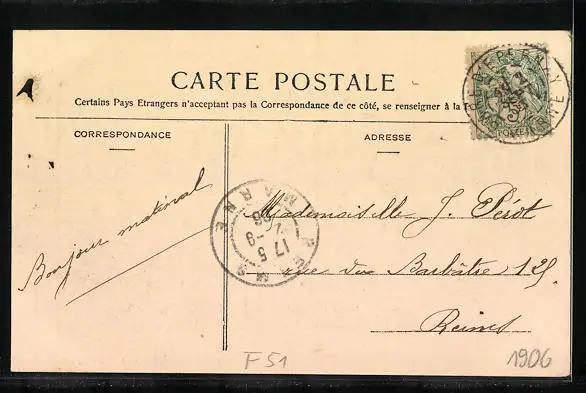 CARTE POSTALE
Certains Pays Etrangers n'acceptant pas la Correspondance de ce côté, se renseigner à la
CORRESPONDANCE
ADRESSE
Bonjour matinal
Mademoiselle J. Pérot
rue du Barbâtre 125
Reims
MARNE
17 5
F 51
1906